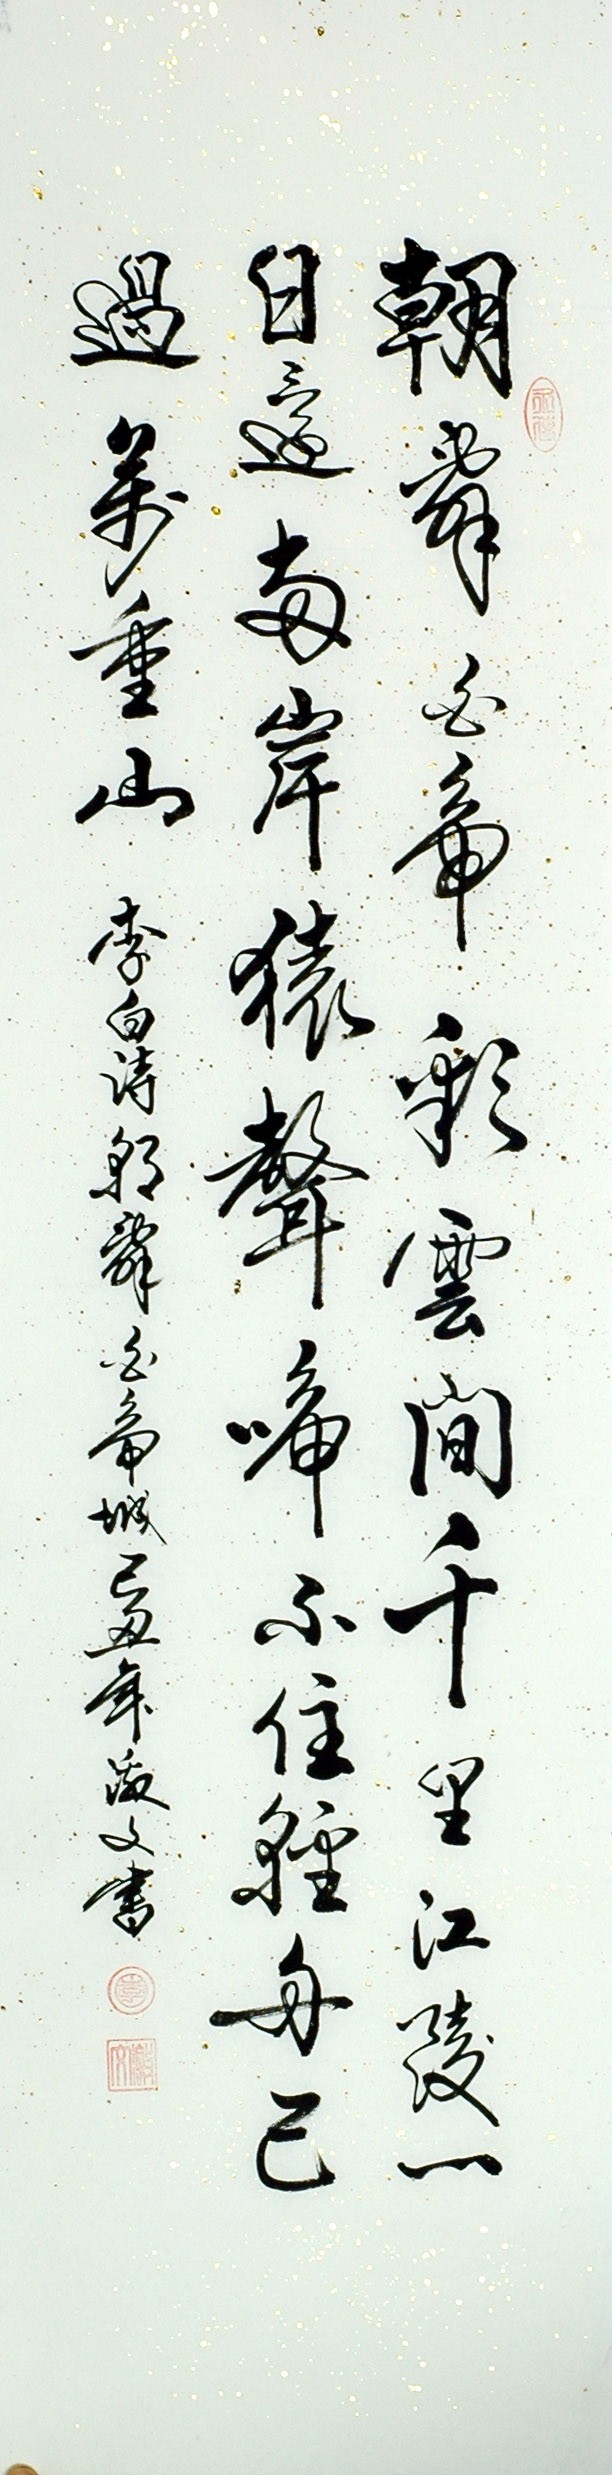 朝辭白帝彩雲間千里江陵一
日還兩岸猿聲啼不住輕舟已
過萬重山 李白詩朝辭白帝城己丑年激文書